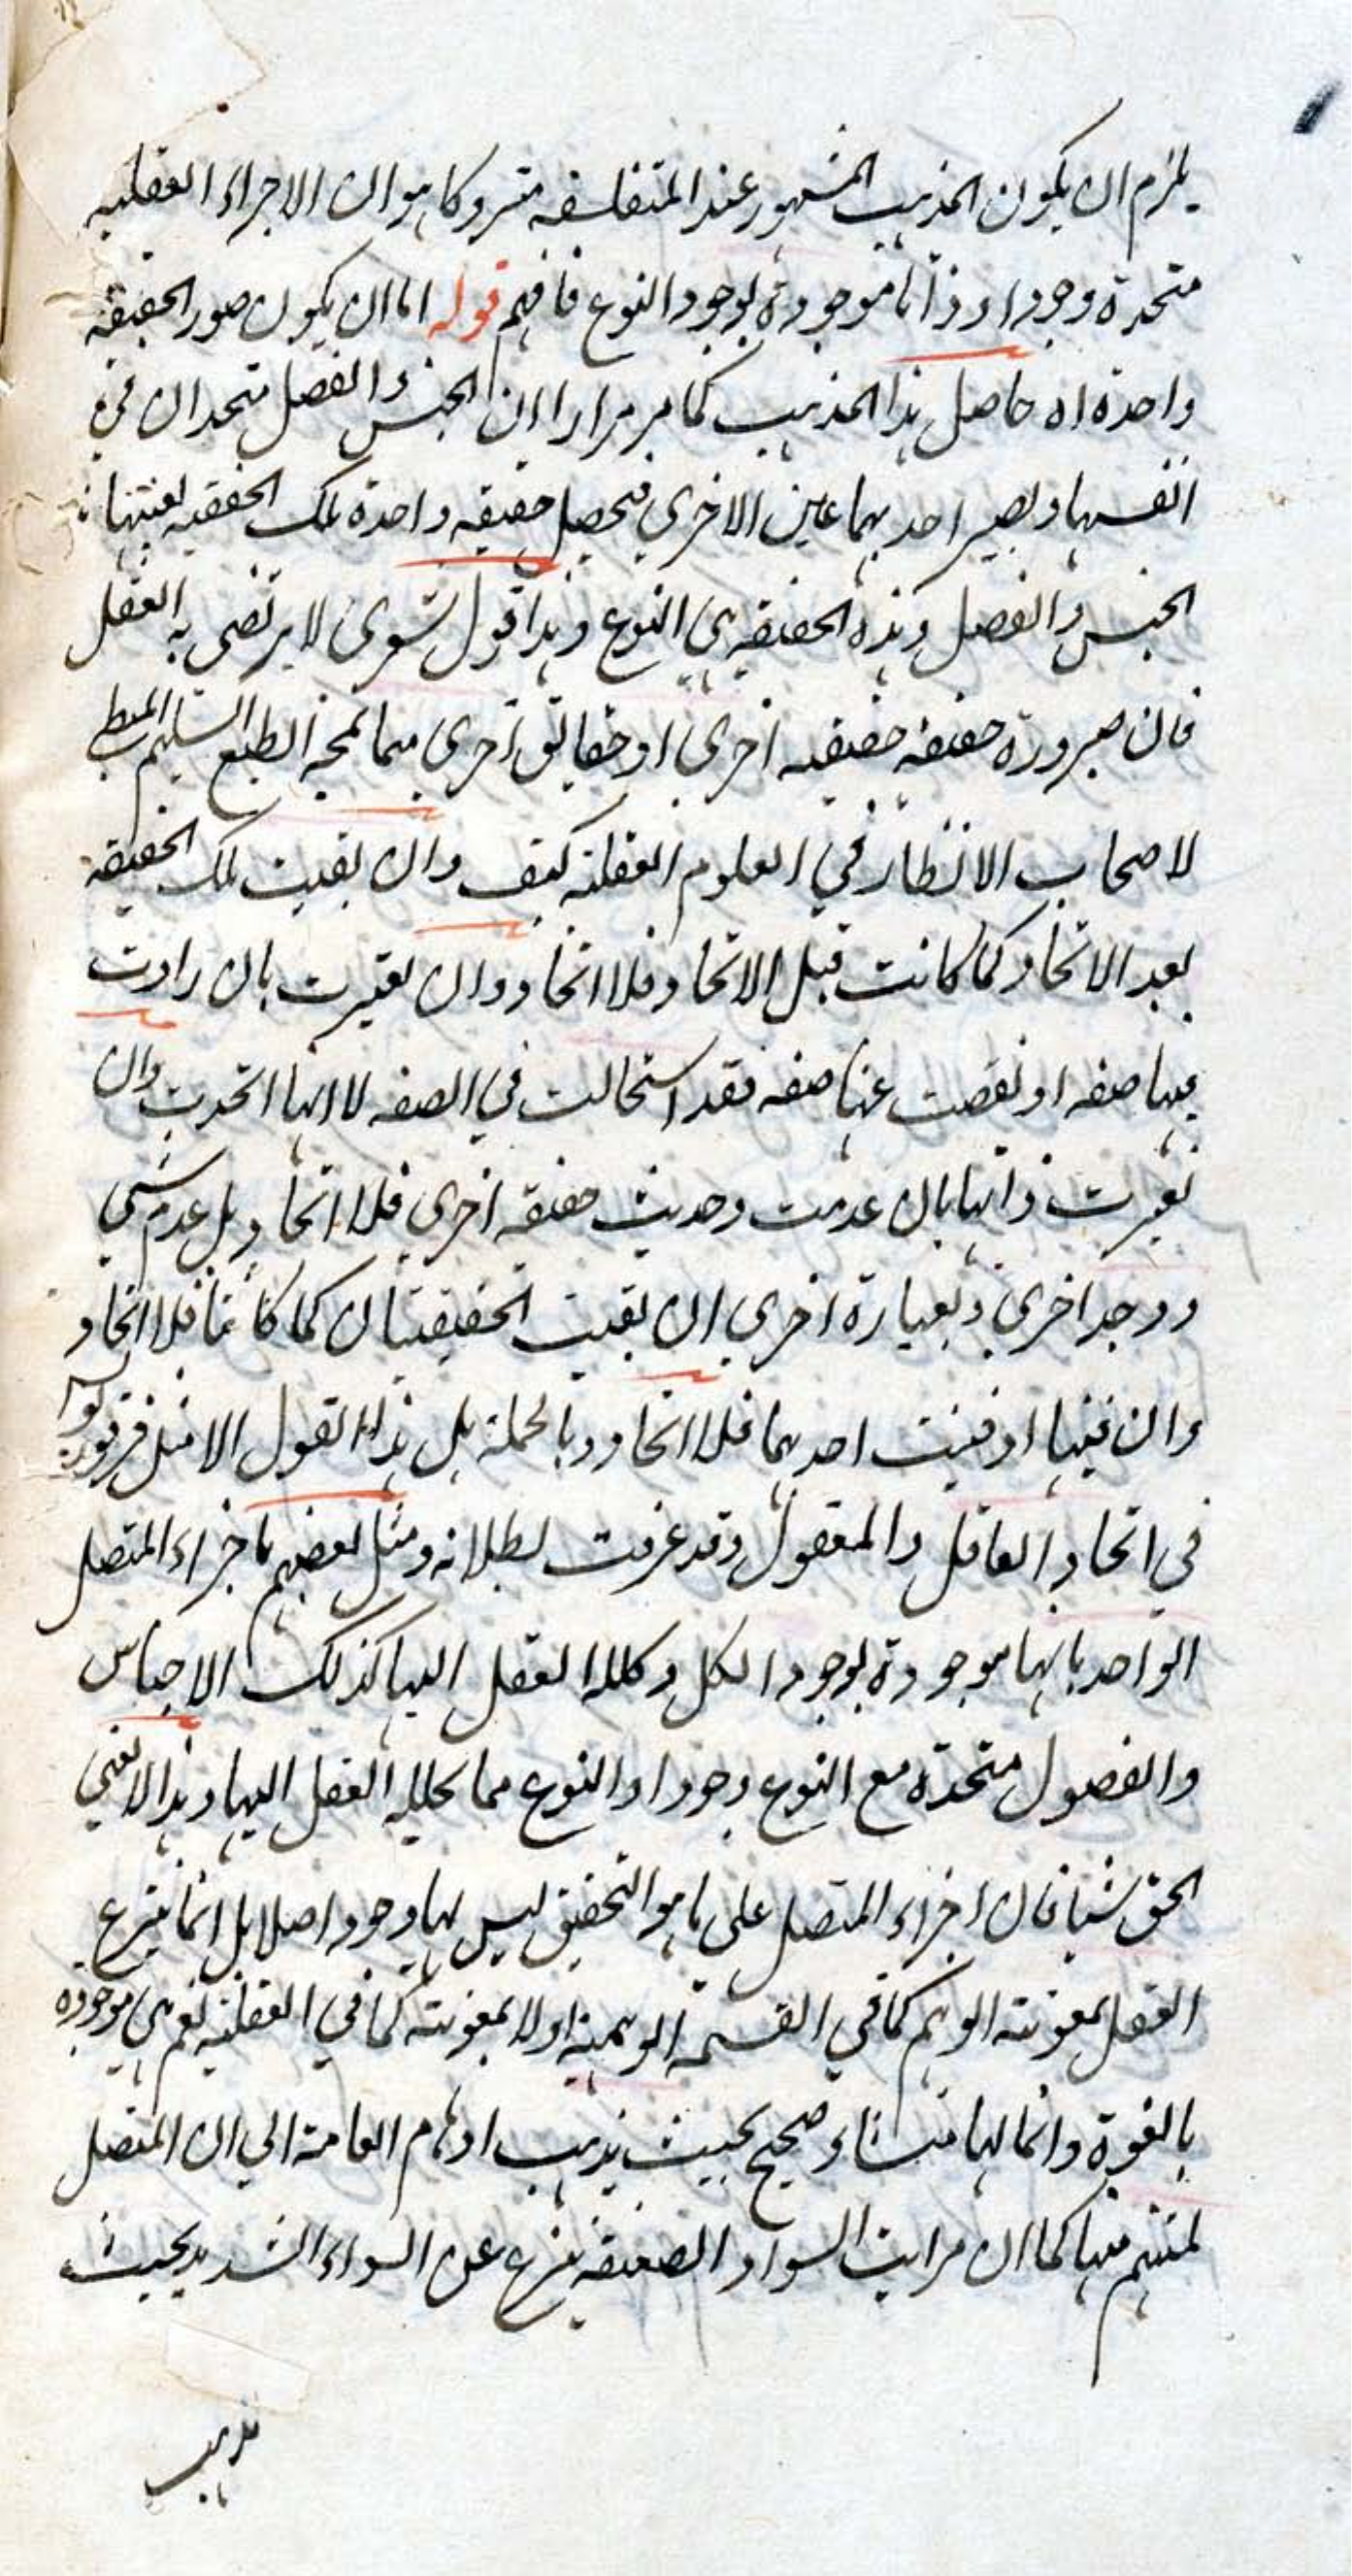 يلزم ان يكون المذهب المشهور عند المتفلسفه متروكا هو ان الاجزاء العقليه
متحدة وجودا وذاتا موجودة بوجود النوع فافهم قوله اما ان يكون صور الحقيقه
واحدة اه حاصل هذا المذهب كما مر مرارا ان الجنس والفصل متحدان في
انفسهما ويصير احدهما عين الاخرى فيحصل حقيقه واحدة تلك الحقيقه بعينها
الجنس والفصل وهذه الحقيقه هي النوع وهذا قول شعرى لا يرتضى به العقل
فان صيرورة حقيقه حقيقه اخرى او حقايق اخرى مما يمجه الطبع السليم
لاصحاب الانظار في العلوم العقليه كيف وان بقيت تلك الحقيقه
بعد الاتحاد كما كانت قبل الاتحاد فلا اتحاد وان تغيرت بان زادت
فيها صفه او نقصت عنها صفه فقد استحالت في الصفه لا انها اتحدت وان
تغيرت ذاتها بان عدمت وحدثت حقيقه اخرى فلا اتحاد بل عدم شي
ووجد اخرى وبعبارة اخرى ان بقيت الحقيقتان كما كانتا فلا اتحاد
وان فنيتا او فنيت احدهما فلا اتحاد وبالجملة بل هذا القول الا مثل فرفوريوس
في اتحاد العاقل والمعقول وقد عرفت بطلانه ومثل بعضهم باجزاء المتصل
الواحد بانها موجودة بوجود الكل وكلله العقل اليها كذلك الاجناس
والفصول متحدة مع النوع وجودا والنوع مما يحلله العقل اليها وهذا لا يغني
الحق شيئا فان اجزاء المتصل على ما هو التحقيق ليس لها وجود اصلا بل انما ينتزع
العقل بمعونته الوهم كما في القسمة الوهمية او لا بمعونته كما في العقلية نعم هي موجوده
بالقوة وانما لها منشاء صحيح بحيث يذهب اوهام العامة الي ان المتصل
ملتئم منها كما ان مراتب السواد الضعيفه ينتزع عن السواد الشديد بحيث
يذهب